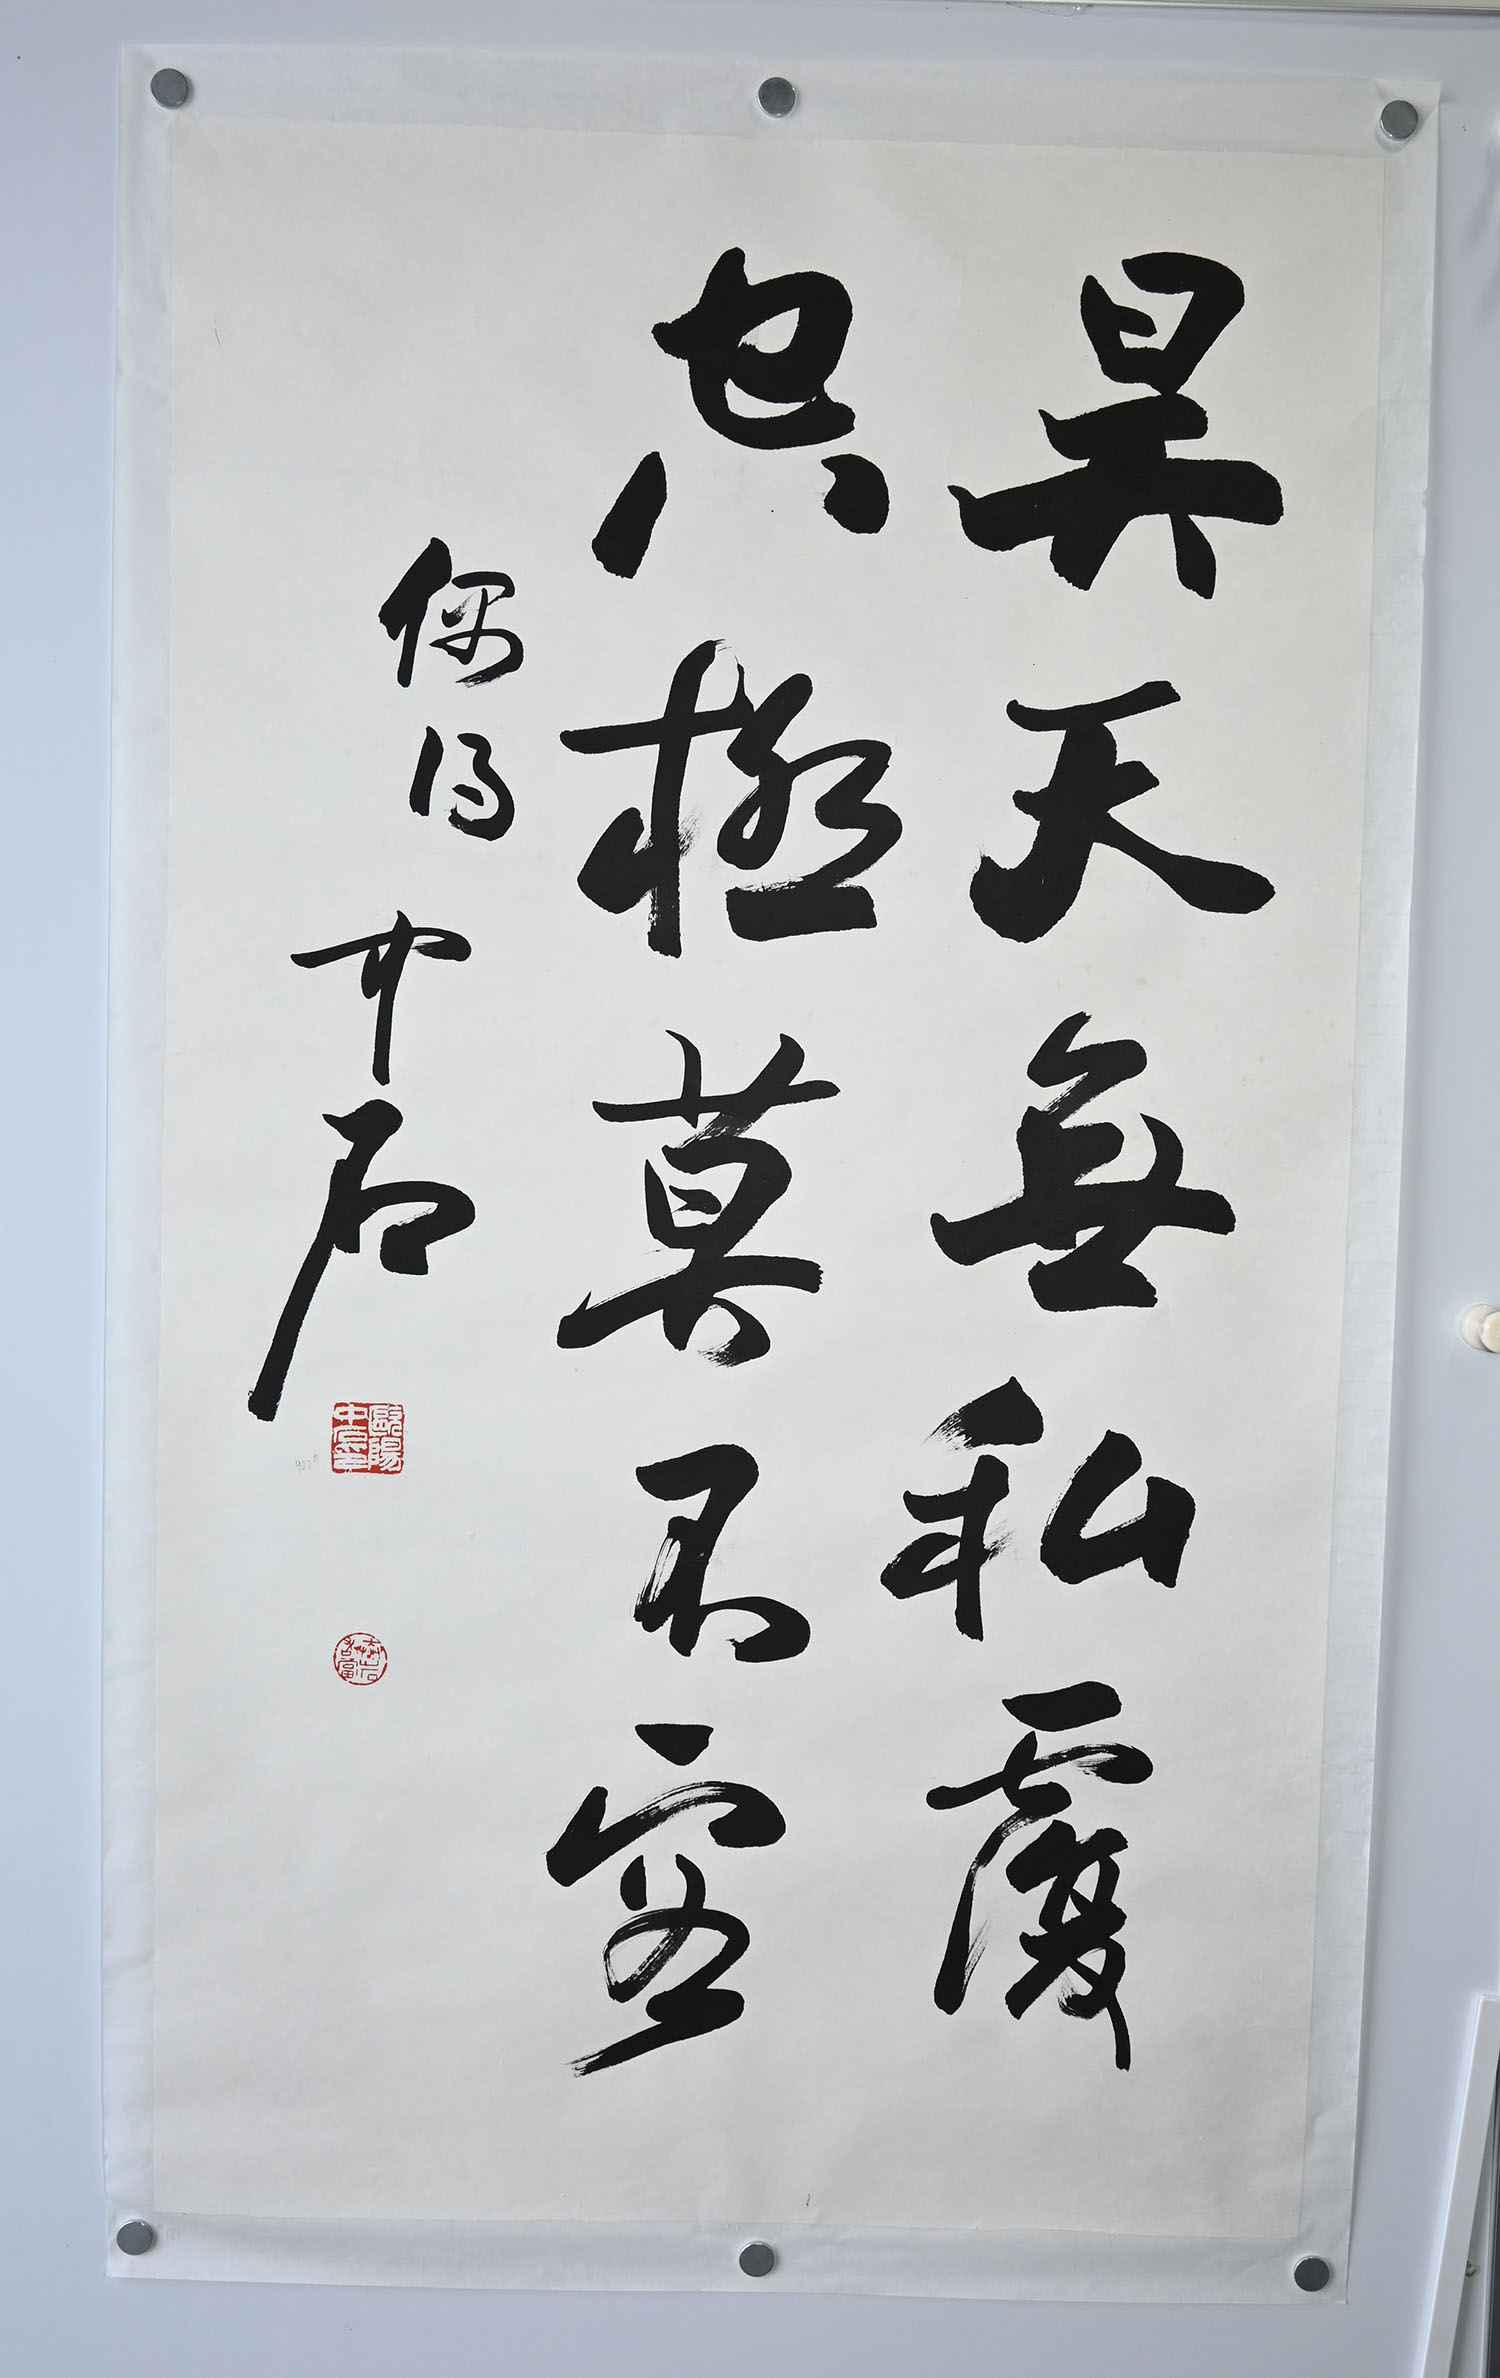 昊天無私覆
極莫不容
偶得 中石
歐陽中石